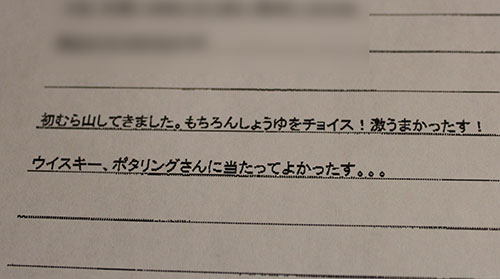 初むら山してきました。もちろんしょうゆをチョイス！激うまかったす！
ウイスキー、ポタリングさんに当たってよかったす。。。